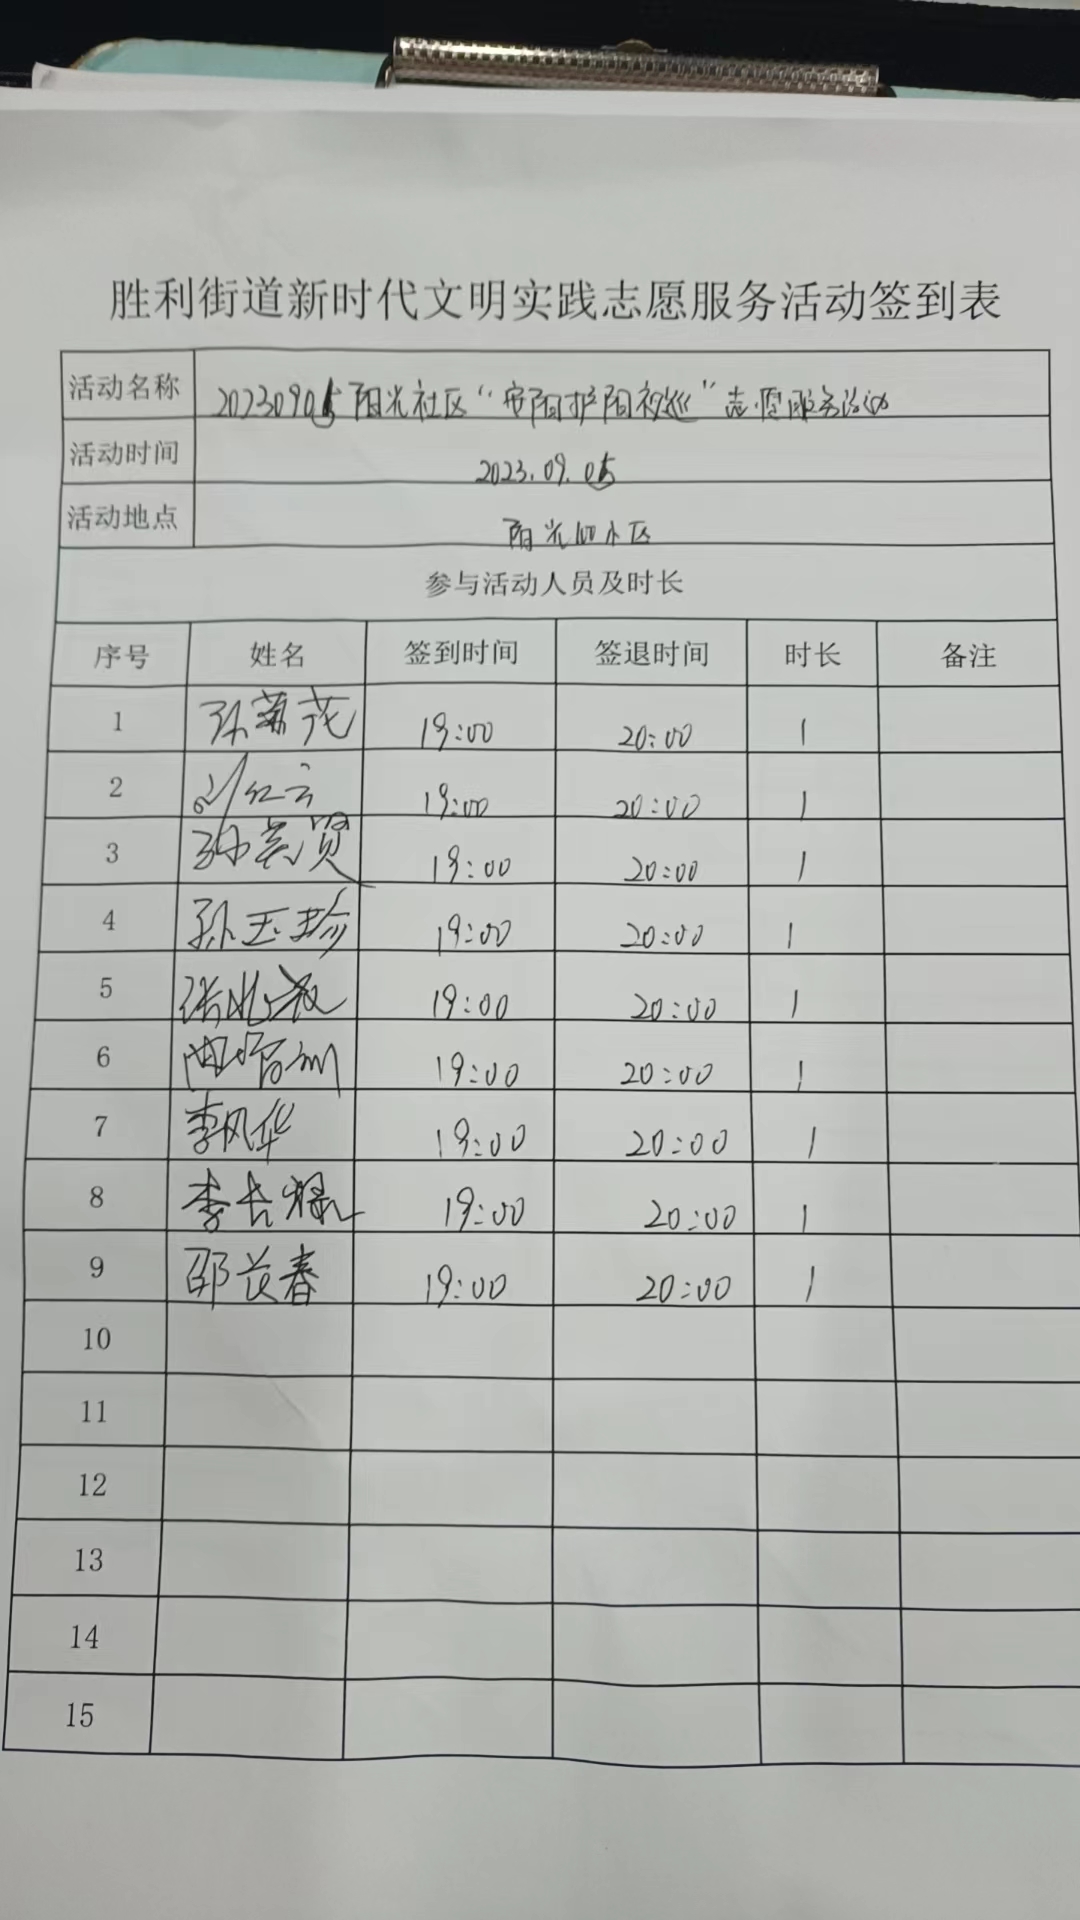 胜利街道新时代文明实践志愿服务活动签到表
活动名称 20230905阳光社区“安阳护阳初巡”志愿服务活动
活动时间 2023.09.05
活动地点 阳光100小区
参与活动人员及时长
序号 姓名 签到时间 签退时间 时长 备注
1 孙菊花 19:00 20:00 1
2 刘红云 19:00 20:00 1
3 孙美贤 19:00 20:00 1
4 孙玉珍 19:00 20:00 1
5 张兆 19:00 20:00 1
6 19:00 20:00 1
7 李风华 19:00 20:00 1
8 李长禄 19:00 20:00 1
9 邵长春 19:00 20:00 1
10
11
12
13
14
15